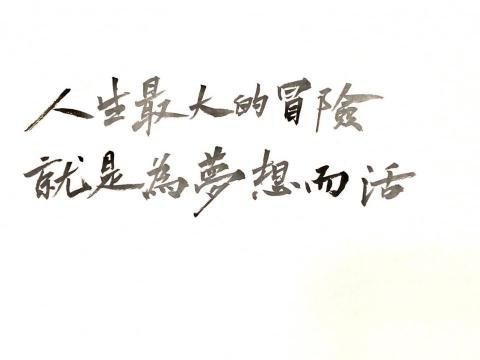 人生最大的冒險
就是為夢想而活